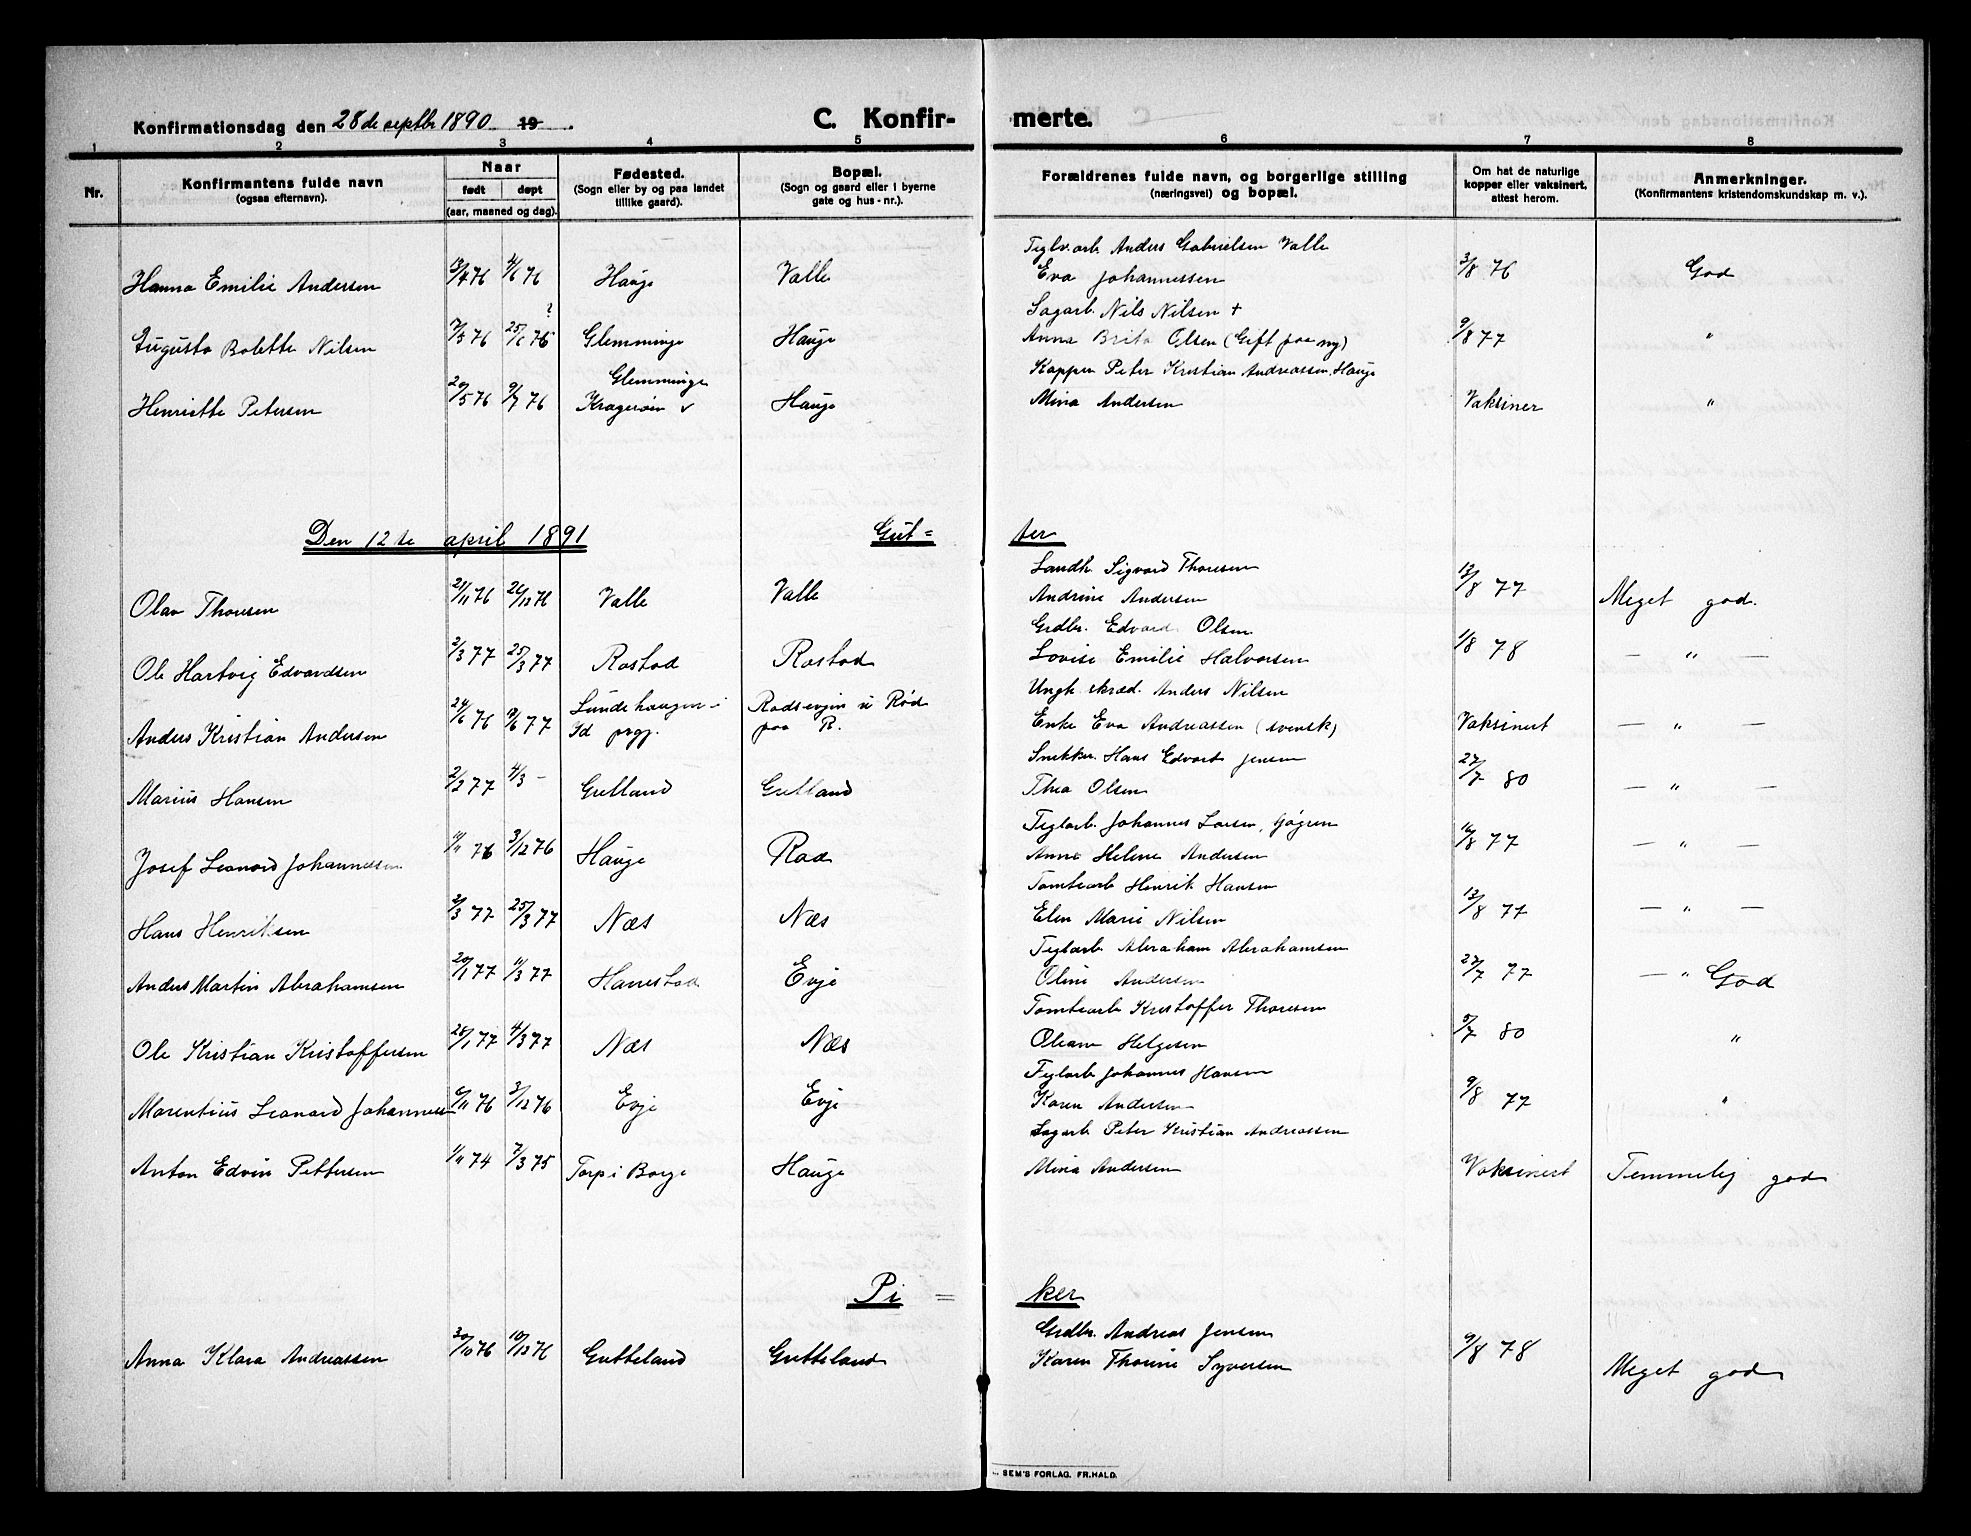 Konfirmationsdag den 28de septbr 1890 19 .
C. Konfir-
merte.
1 2 3 4 5 6 7 8
Nr.
Konfirmantens fulde navn
(ogsaa efternavn).
Naar
født døpt
(aar, maaned og dag).
Fødested.
(Sogn eller by og paa landet
tillike gaard).
Bopæl.
(Sogn og gaard eller i byerne
gate og hus-nr.).
Forældrenes fulde navn, og borgerlige stilling
(næringsvei) og bopæl.
Om hat de naturlige
kopper eller vaksinert,
attest herom.
Anmerkninger.
(Konfirmantens kristendomskundskap m. v.).
Teglv.arb. Anders Gabrielsen Valle
Hanna Emilie Andersen 13/4 76 4/6 76 Hauge Valle Eva Johannessen 3/8 76 God
Sagarb. Nils Nilsen +
Augusta Bolette Nilsen 7/5 76 25/6 76 ? Glemminge Hauge Anna Brita Olsen (Gift paa ny) 9/8 77 "
Glemminge Kapper Peter Kristian Andreassen, Hauge
Henriette Petersen 20/5 76 9/7 76 Kragerøen v Hauge Mina Andersen Vaksiner "
Den 12te april 1891 Gut=
ter
Landh. Sigvard Thoresen
Olav Thoresen 21/11 76 26/12 76 Valle Valle Andrine Andersen 13/8 77 Meget god.
Grdbr. Edvard Olsen
Ole Hartvig Edvardsen 2/3 77 25/3 77 Rostad Rostad Lovise Emilie Halvorsen 1/8 78 — " —
Lundehaugen i Rødsevjen u Rød Ungk. skræd. Anders Nilsen
Anders Kristian Andersen 24/6 76 10/6 77 Id prgj. paa R. Enke Eva Andreassen (svensk) Vaksinert — " —
Snekker. Hans Edvart Jensen
Marius Hansen 2/2 77 4/3 - Gretland Gretland Thea Olsen 27/7 80 — " —
Teglarb. Johannes Larsen, Gjøgren
Josef Leonard Johannessen 11/11 76 3/12 76 Hauge Rød Anne Helene Andersen 16/8 77 — " —
Tomtearb Henrik Hansen
Hans Henriksen 2/3 77 25/3 77 Næs Næs Elen Marie Nilsen 13/8 77 — " —
Teglarb. Abraham Abrahamsen
Anders Martin Abrahamsen 20/1 77 11/3 77 Hanestad Evje Oline Andersen 27/7 77 — " God
Tomtearb Kristoffer Thoresen
Ole Kristian Kristoffersen 28/1 77 4/3 77 Næs Næs Oleane Helgesen 5/7 80 "
Teglarb Johannes Hansen
Marentius Leonard Johannes 6/11 76 3/12 76 Evje Evje Karen Andersen 9/8 77 "
Sagarb Peter Kristian Andreassen
Anton Edvin Pettersen 1/11 74 7/3 75 Torp i Borge Hauge Mina Andersen Vaksinert Temmelig god
Pi =
ker
Grdbr. Andreas Jensen
Anna Klara Andreassen 30/10 76 10/12 76 Gutteland Gutteland Karen Thorine Syversen 9/8 78 Meget god
SEM'S FORLAG. FR.HALD.